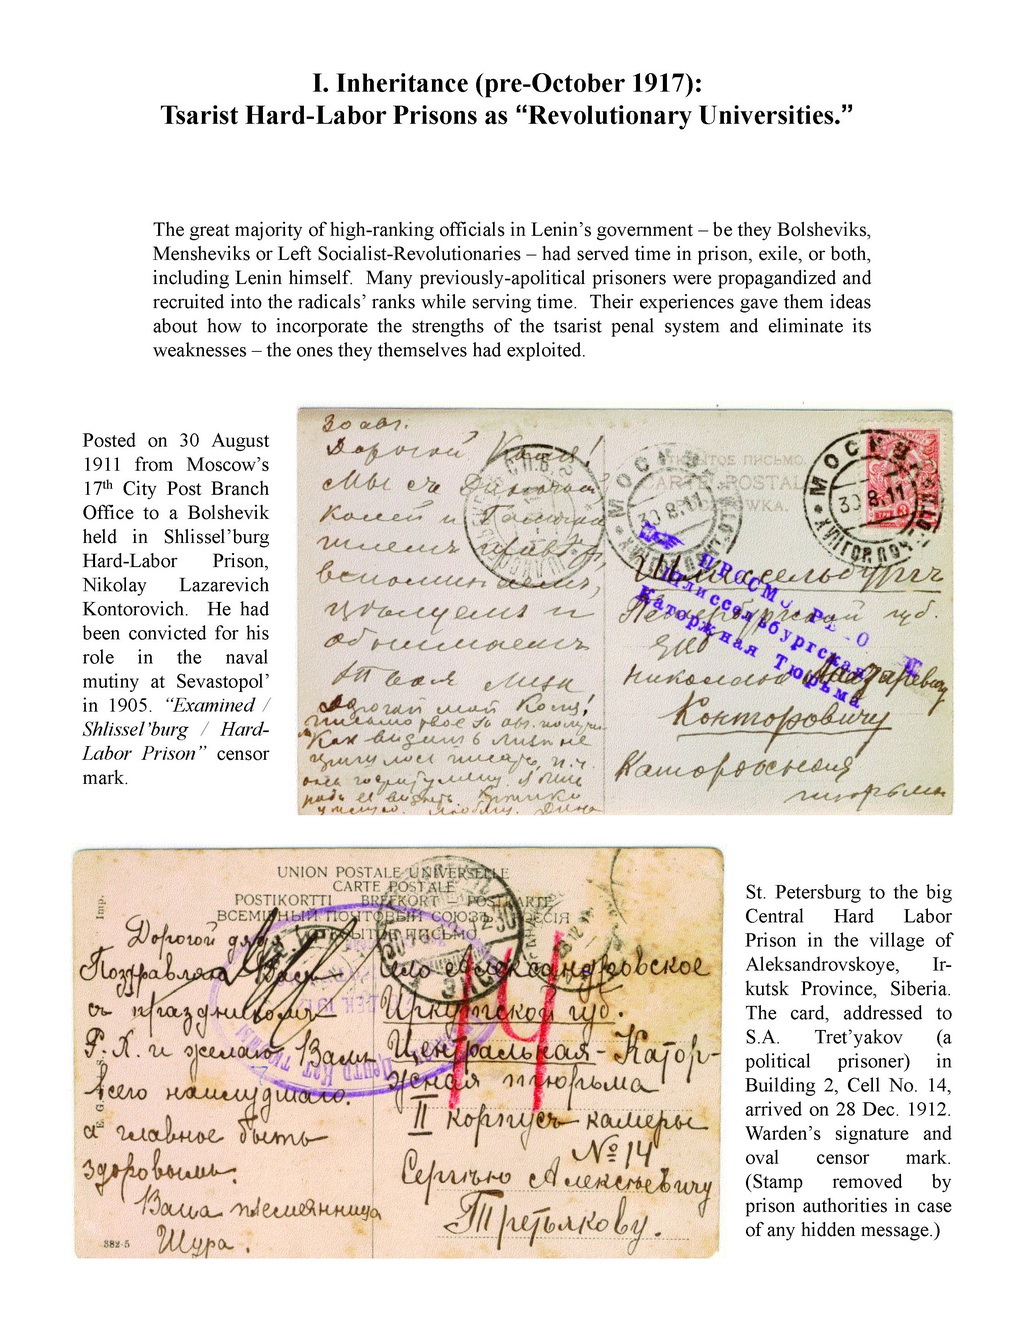 I. Inheritance (pre-October 1917):
Tsarist Hard-Labor Prisons as “Revolutionary Universities.”
The great majority of high-ranking officials in Lenin’s government – be they Bolsheviks,
Mensheviks or Left Socialist-Revolutionaries – had served time in prison, exile, or both,
including Lenin himself. Many previously-apolitical prisoners were propagandized and
recruited into the radicals’ ranks while serving time. Their experiences gave them ideas
about how to incorporate the strengths of the tsarist penal system and eliminate its
weaknesses – the ones they themselves had exploited.
Posted on 30 August
1911 from Moscow’s
17th City Post Branch
Office to a Bolshevik
held in Shlissel’burg
Hard-Labor Prison,
Nikolay Lazarevich
Kontorovich. He had
been convicted for his
role in the naval
mutiny at Sevastopol’
in 1905. “Examined /
Shlissel’burg / Hard-
Labor Prison” censor
mark.
30 авг.
Дорогой Коля!
Мы съ
Колей и
шлемъ
вспоминаемъ,
цѣлуемъ и
обнимаемъ
Твоя Лиза
Дорогой мой Коля!
МОСКВА
30.8.11
МОСКВА
30.8.11
Шлиссельбургская
Каторжная Тюрьма
Шлиссельбургъ
Петербургской губ.
Его
Николаю Лазаревичу
Конторовичу
Каторжная
тюрьма
UNION POSTALE UNIVERSELLE
CARTE POSTALE
POSTIKORTTI BREFKORT – POSTKARTE
ВСЕМІРНЫЙ ПОЧТОВЫЙ СОЮЗЪ. РОССІЯ
ОТКРЫТОЕ ПИСЬМО
Imp.
Дорогой дядя
Поздравляю Васъ
съ праздникомъ
Р. Х. и желаю Вамъ
всего наилучшаго.
а главное быть
здоровымъ.
Ваша племянница
Шура.
382-5
14
Село Александровское
Иркутской губ.
Центральная-Катор-
жная тюрьма
II корпусъ камеры
№ 14
Сергѣю Алексѣевичу
Третьякову.
St. Petersburg to the big
Central Hard Labor
Prison in the village of
Aleksandrovskoye, Ir-
kutsk Province, Siberia.
The card, addressed to
S.A. Tret’yakov (a
political prisoner) in
Building 2, Cell No. 14,
arrived on 28 Dec. 1912.
Warden’s signature and
oval censor mark.
(Stamp removed by
prison authorities in case
of any hidden message.)